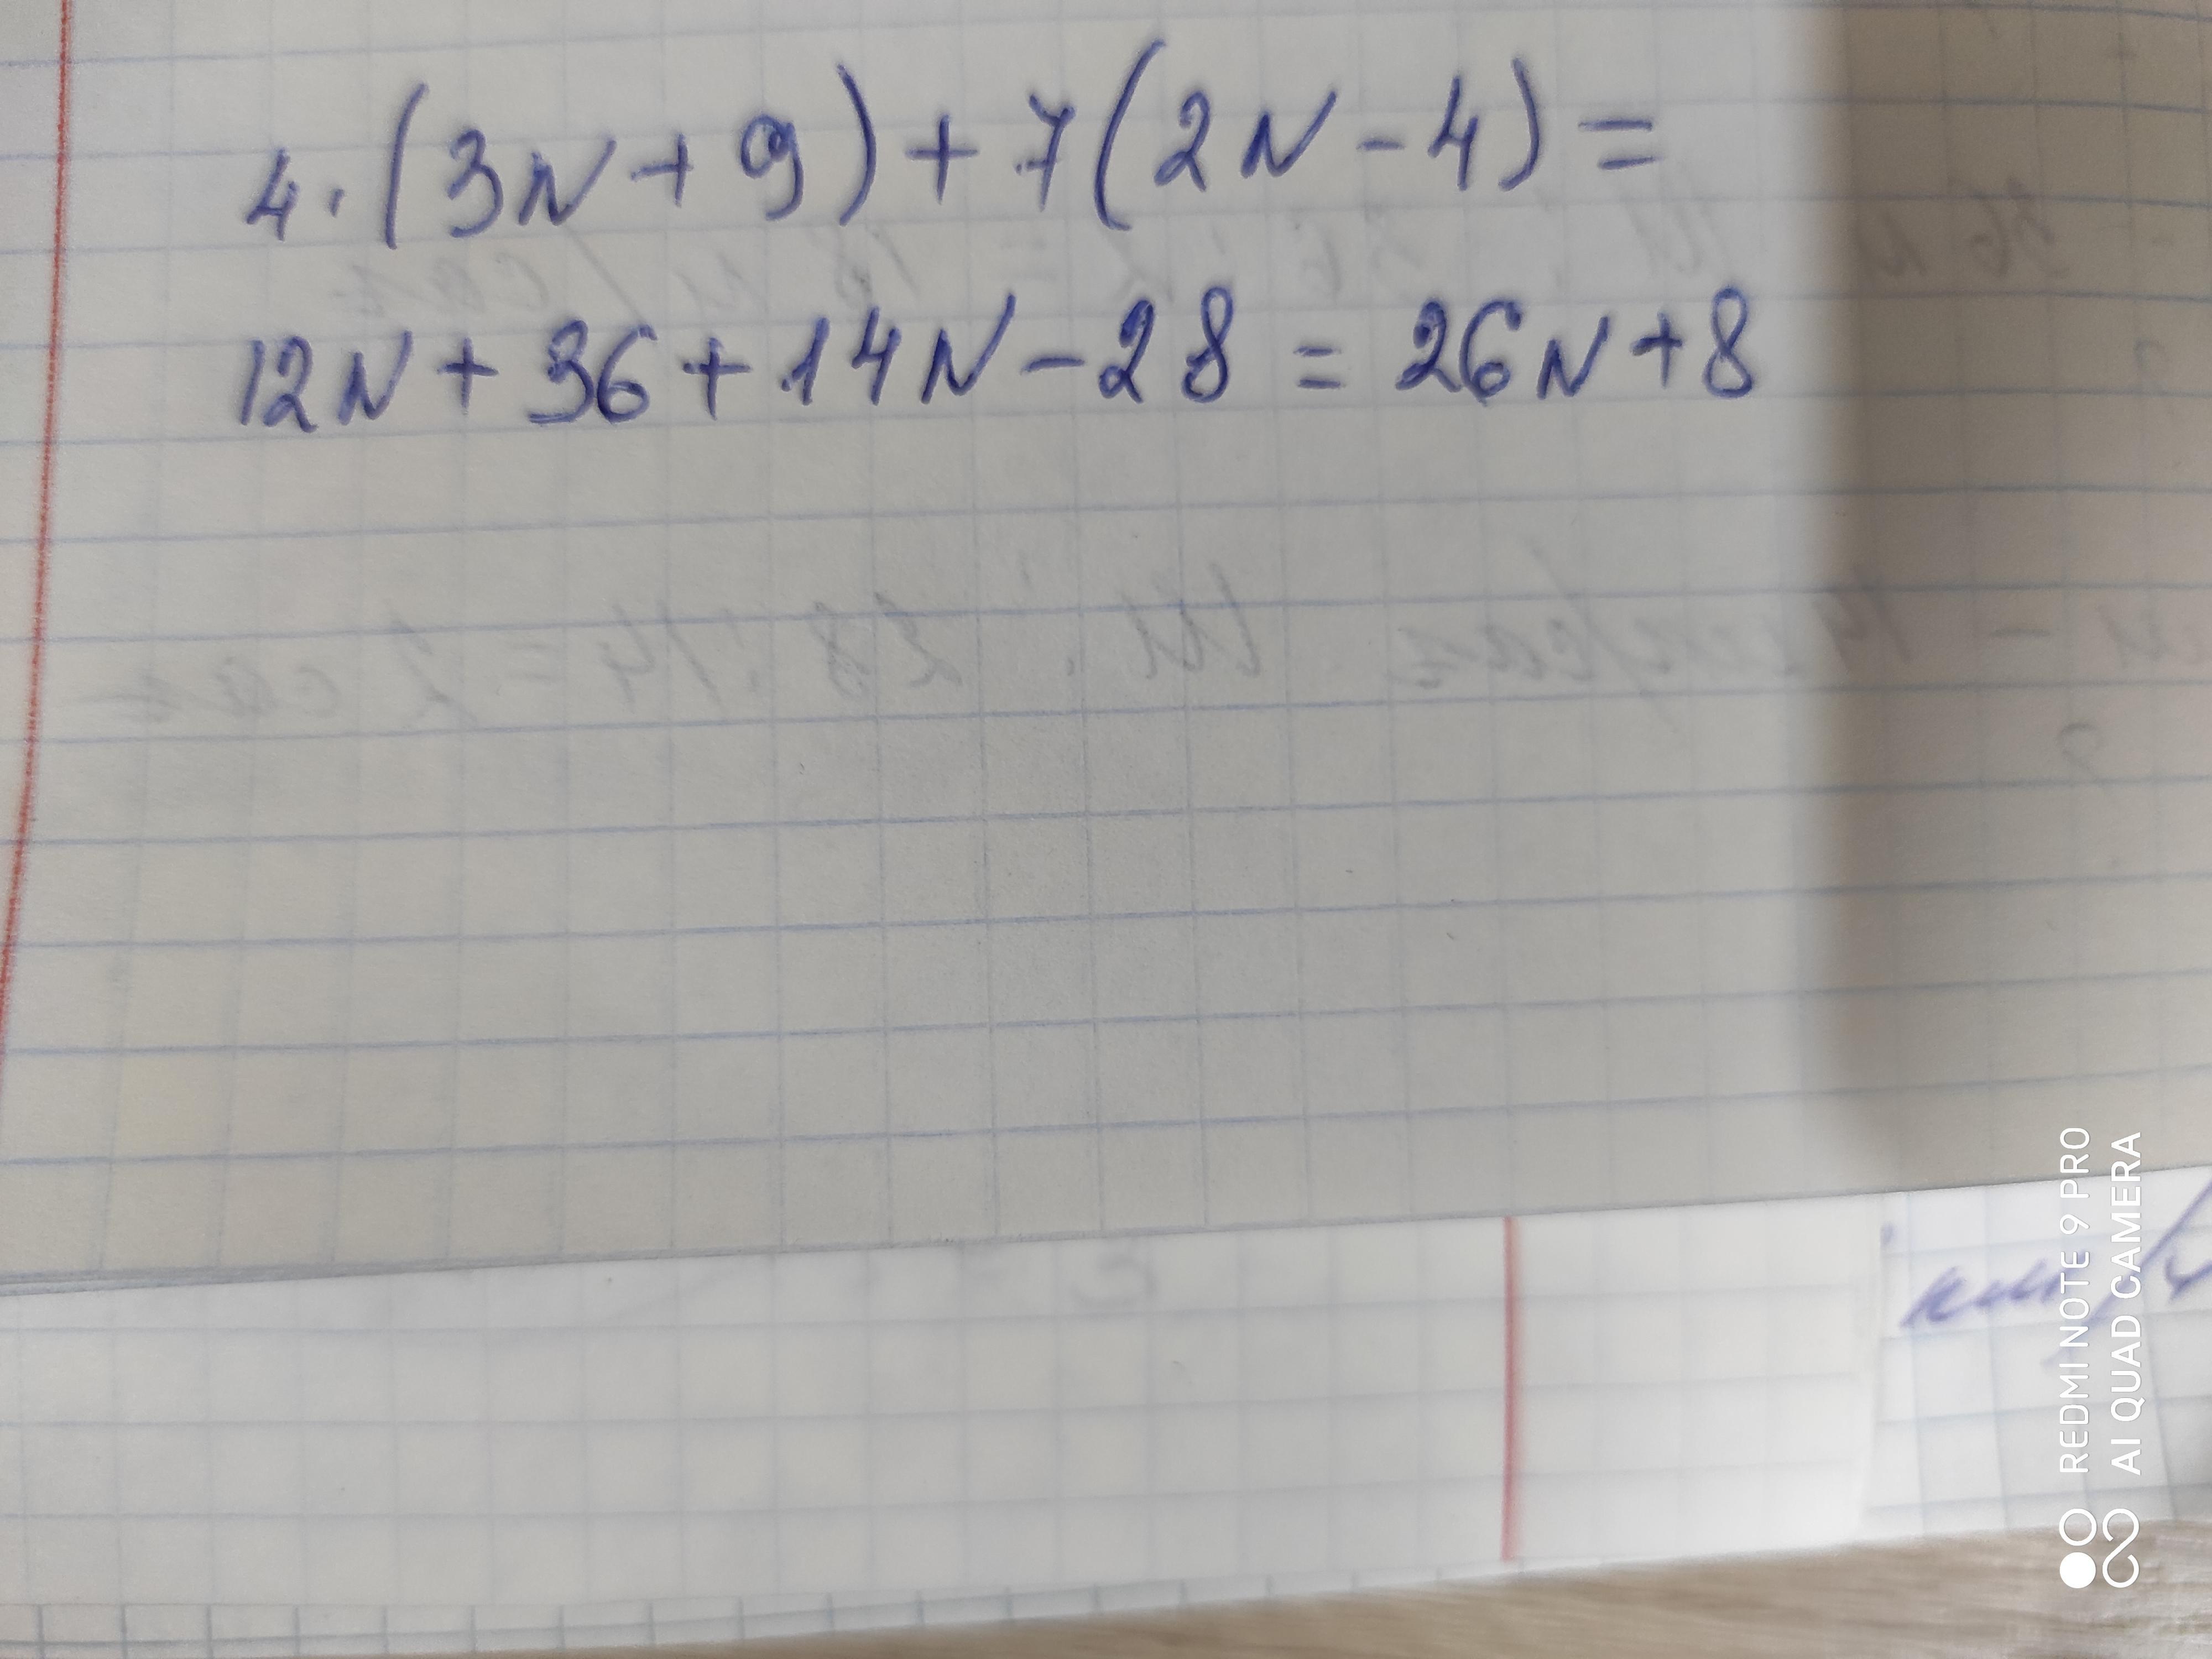 4·(3N+9)+7(2N-4)=
12N+36+14N-28=26N+8
REDMI NOTE 9 PRO
AI QUAD CAMERA